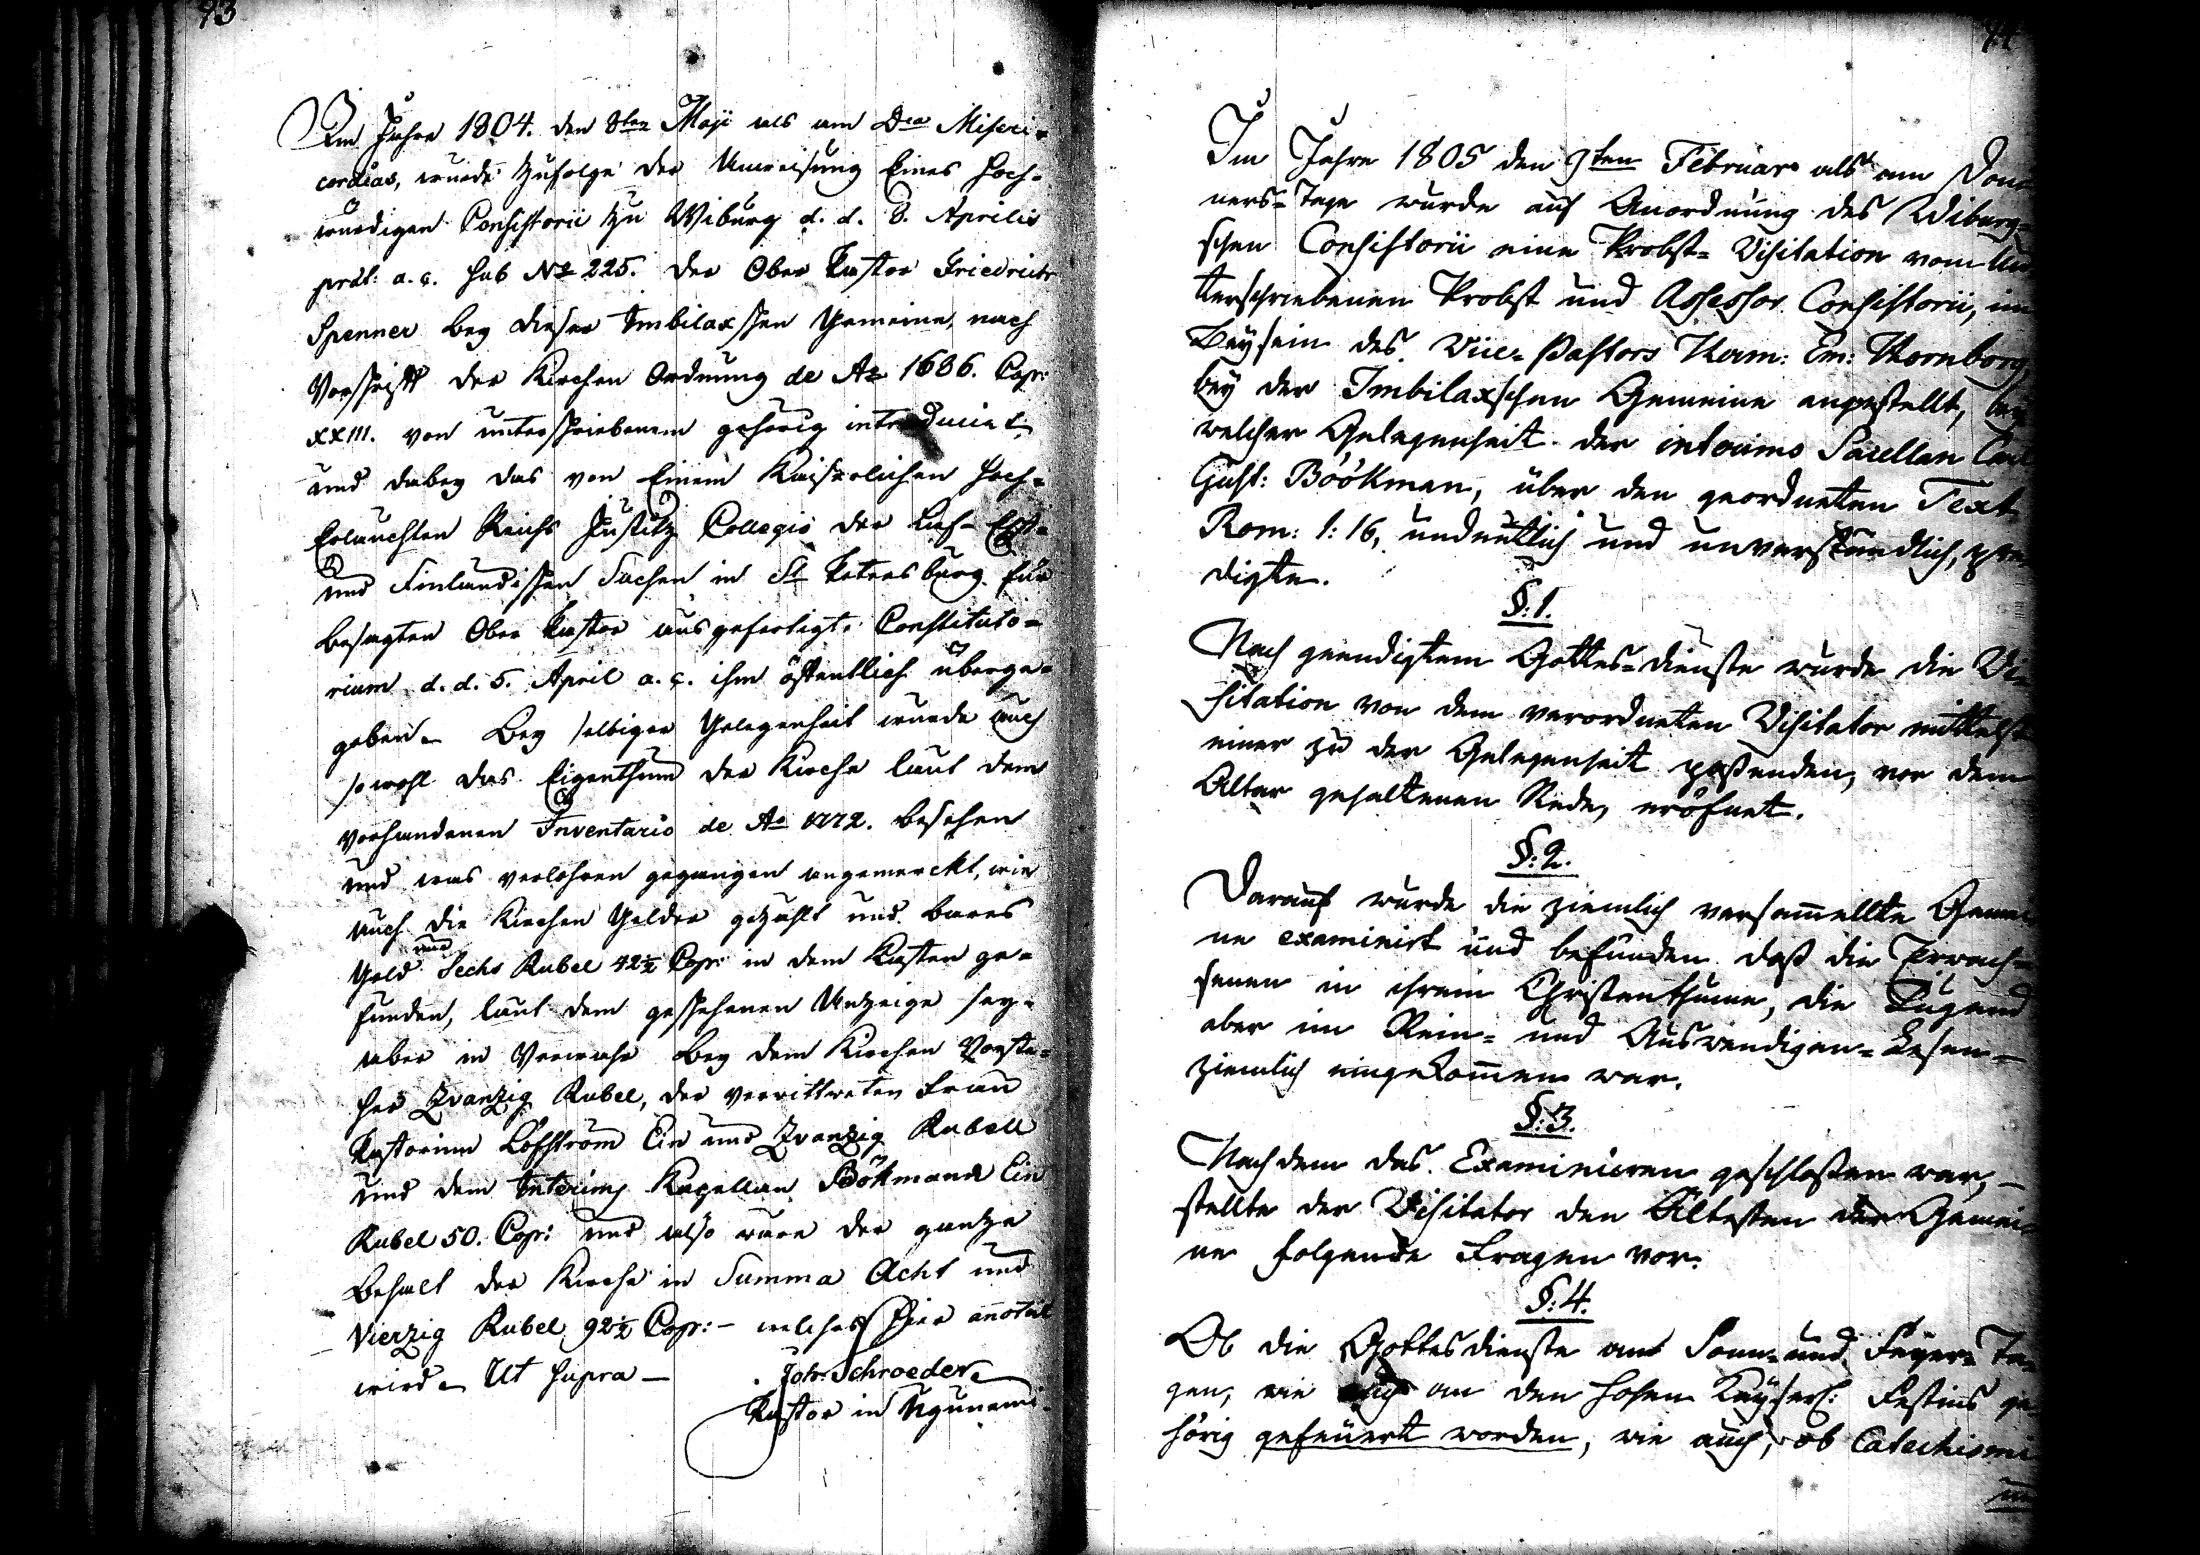 93
Im Jahre 1804. den 8ten Maji als am Dca Miseri-
cordias, wurde zufolge der Anweisung Eines Hoch-
würdigen Consistorii zu Wiburg d. d. 8. Aprilis
a. c. sub No 225. der Ober Pastor Friedrich
Spenner bey dieser Imbilaxschen Gemeine, nach
Vorschrift der Kirchen Ordnung de Ao 1686. Cap:
XXIII. von unterschriebenem gehörig introduciret
und dabey das von Einem Kaiserlichen Hoch-
Erlauchten Reichs Justitz Collegio der Lief- Est-
und Finländischen Sachen in St Petersburg für
besagten Ober Pastor ausgefertigte Constituto-
rium d. d. 5. April a. c. ihm öffentlich überge-
geben. Bey selbiger Gelegenheit wurde auch
sowohl das Eigenthum der Kirche laut dem
vorhandenen Inventario de Ao 1772. besehen
und was verlohren gegangen angemerckt, wie
auch die Kirchen Gelder gezählt und bares
Geld nur Sechs Rubel 42½ Cop: in dem Kasten ge-
funden, laut dem geschehenen Anzeige sey-
aber in Verwahr bey dem Kirchen Vorste-
her Zvanzig Rubel, der verwittweten Frau
Pastorinn Löfström Ein und Zvanzig Rubell
und dem Interims Kapellan Bökmann Ein
Rubel 50. Cop: und also ware der gantze
Behalt der Kirche in Summa Acht und
Vierzig Rubel 92½ Cop:- welches hier annotirt
wird. Ut supra —
Joh: Schroeder
Pastor in
Im Jahre 1805 den 9ten Februar als am Don-
ners-Tage wurde auf Anordnung des Wiburg-
schen Consistorii eine Probst-Visitation vom Un-
terschriebenen Probst und Assessor Consistorii, im
Beysein des Vice-Pastors Herm: Em: Thornborg,
bey der Imbilaxschen Gemeine angestellt, bey
welcher Gelegenheit der interims Sacellan Carl
Gust: Böökman, über den geordneten Text
Rom: 1: 16, undeutlich und unverständlich, pre-
digte.
§:1.
Nach geendigtem Gottes-dienste wurde die Vi-
sitation von dem verordneten Visitator mittelst
einer zu der Gelegenheit passenden, vor dem
Altar gehaltenen Rede, eröfnet.
§:2.
Darauf wurde die ziemlich versamellte Gemei-
ne examinirt und befunden daß die Erwach-
senen in ihrem Christenthume, die Jugend
aber im Rein- und Auswendigen-Lesen-
ziemlich eingekomen war.
§:3.
Nachdem das Examiniren geschlossen war, —
stellte der Visitator den Ältesten der Gemei-
ne folgende Fragen vor.
§:4.
Ob die Gottesdienste am Sonn- und Feyer-Ta-
gen, wie auch an den hohen Kayserl: Festins ge-
hörig gefeüert worden, wie auch, ob Catechismi
und